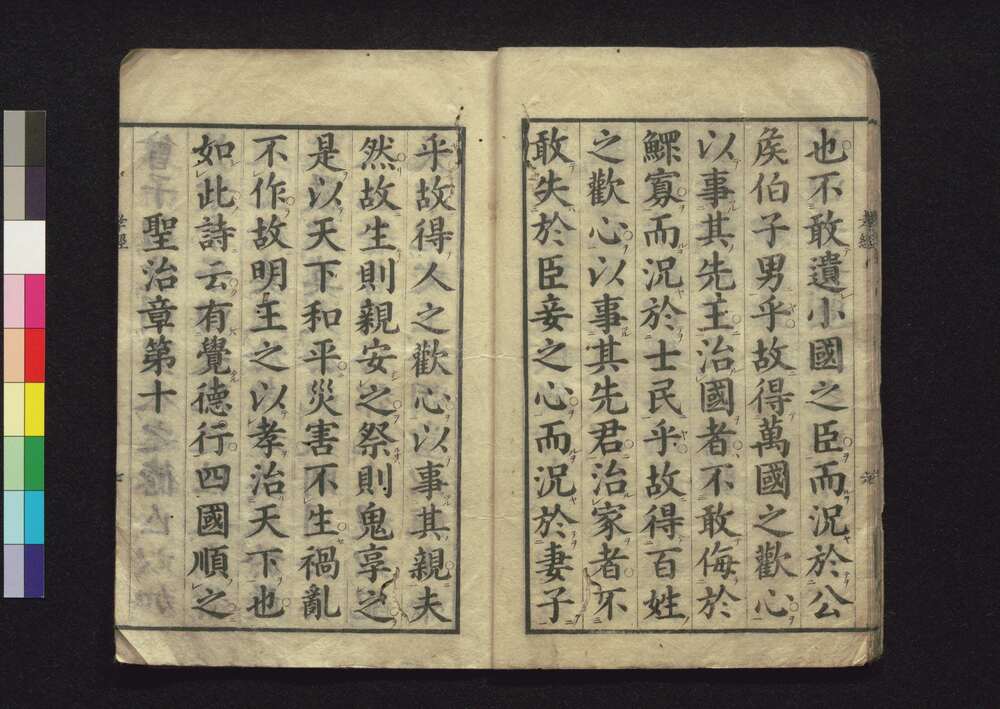 也不敢遺小國之臣而況於公
矦伯子男乎故得萬國之歡心
以事其先主治國者不敢侮於
鰥寡而況於士民乎故得百姓
之歡心以事其先君治家者不
敢失於臣妾之心而況於妻子
乎故得人之歡心以事其親夫
然故生則親安之祭則鬼享之
是以天下和平災害不生禍亂
不作故明主之以孝治天下也
如此詩云有覺德行四國順之
聖治章第十